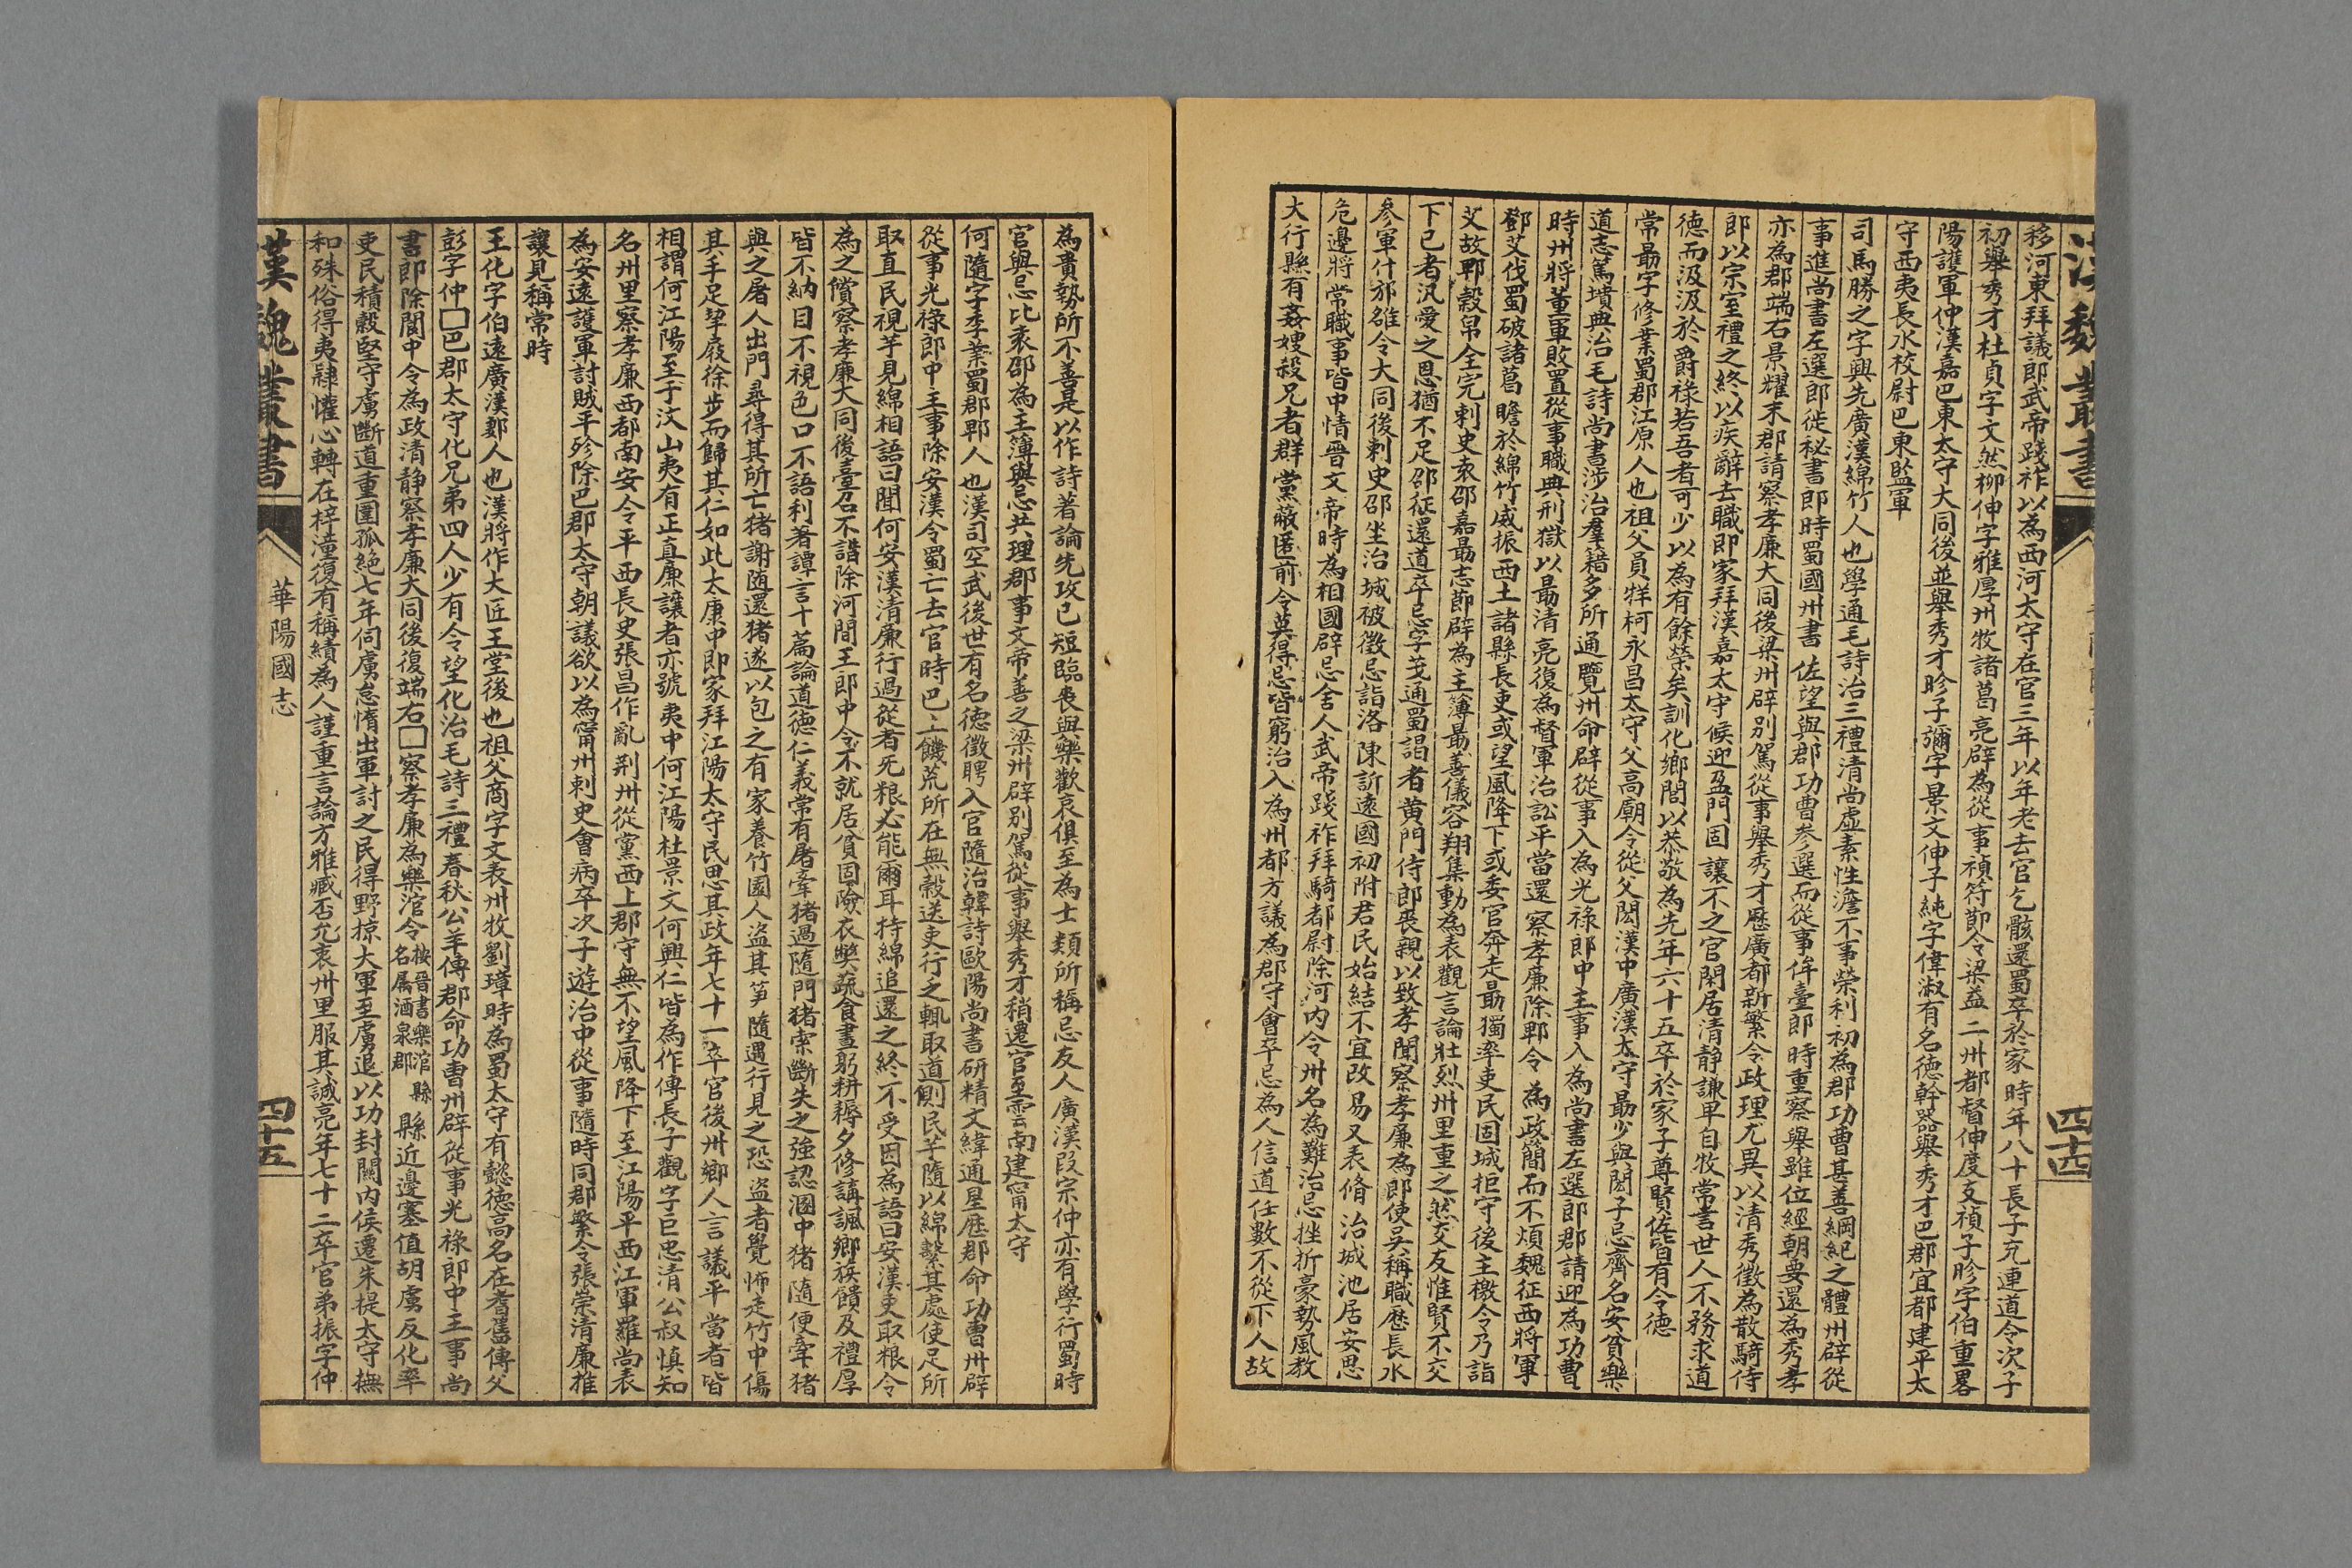 漢魏叢書
四十四
移河東拜議郎武帝踐祚以為西河太守在官三年以年老去官乞骸還蜀卒於家時年八十長子充連道令次子
初舉秀才杜貞字文然柳伸字雅厚州牧諸葛亮辟為從事禎符節令梁益二州都督伸度支禎子眕字伯重畧
陽護軍仲漢嘉巴東太守大同後並舉秀才眕子彌字景文伸子純字偉淑有名德幹器舉秀才巴郡宜都建平太
守西夷長水校尉巴東監軍
司馬勝之字興先廣漢綿竹人也學通毛詩治三禮清尚虛素性澹不事榮利初為郡功曹甚善綱紀之體州辟從
事進尚書左選郎徙秘書郎時蜀國州書佐望與郡功曹參選而從事侔臺郎時重察舉雖位經朝要還為秀孝
亦為郡端右景耀末郡請察孝廉大同後梁州辟別駕從事舉秀才歷廣都新繁令政理尤異以清秀徵為散騎侍
郎以宗室禮之終以疾辭去職即家拜漢嘉太守候迎盈門固讓不之官閑居清静謙卑自牧常言世人不務求道
德而汲汲於爵祿若吾者可少以為有餘榮矣訓化鄉閭以恭敬為先年六十五卒於家子尊賢佐皆有令德
常勗字修業蜀郡江原人也祖父員牂柯永昌太守父高廟令從父閎漢中廣漢太守勗少與閎子忌齊名安貧樂
道志篤墳典治毛詩尚書涉治羣籍多所通覽州命辟從事入為光祿郎中主事入為尚書左選郎郡請迎為功曹
時州將董軍敗置從事職典刑獄以勗清亮復為督軍治訟平當還察孝廉除郫令為政簡而不煩魏征西將軍
鄧艾伐蜀破諸葛瞻於綿竹威振西土諸縣長吏或望風降下或委官奔走勗獨率吏民固城拒守後主檄令乃詣
艾故郫穀帛全完刺史袁邵嘉勗志節辟為主簿勗善儀容翔集動為表觀言論壯烈州里重之然交友惟賢不交
下已者汎愛之恩猶不足邵征還道卒忌字茂通蜀謁者黃門侍郎喪親以致孝聞察孝廉為郎使吳稱職歷長水
參軍什邡雒令大同後刺史邵坐治城被徵忌詣洛陳訴遠國初附君民始結不宜改易又表脩治城池居安思
危邊將常職事皆中情晋文帝時為相國辟忌舍人武帝踐祚拜騎都尉除河内令州名為難治忌挫折豪勢風教
大行縣有姦嫂殺兄者群黨蔽匿前令莫得忌皆窮治入為州都方議為郡守會卒忌為人信道任數不從下人故
為貴勢所不善是以作詩著論先攻已短臨喪與樂歡哀俱至為士類所稱忌友人廣漢段宗仲亦有學行蜀時
官與忌比表邵為主簿與忌共理郡事文帝善之梁州辟別駕從事舉秀才稍遷官至雲南建甯太守
何隨字季業蜀郡郫人也漢司空武後世有名德徵聘入官隨治韓詩歐陽尚書研精文緯通星歷郡命功曹州辟
從事光祿郎中主事除安漢令蜀亡去官時巴土饑荒所在無穀送吏行乏輒取道側民芋隨以綿繫其處使足所
取直民視芋見綿相語曰聞何安漢清廉行過從者无粮必能爾耳持綿追還之終不受因為語曰安漢吏取粮令
為之償察孝廉大同後臺召不諧除河間王郎中令不就居貧固儉衣弊蔬食晝躬耕耨夕修講諷鄉族饋及禮厚
皆不納目不視色口不語利著譚言十篇論道德仁義常有屠牽猪過隨門猪索斷失之強認溷中猪隨便牽猪
與之屠人出門尋得其所亡猪謝隨還猪遂以包之有家養竹園人盜其笋隨遇行見之恐盜者覺怖走竹中傷
其手足挈屐徐步而歸其仁如此太康中即家拜江陽太守民思其政年七十一卒官後州鄉人言議平當者皆
相謂何江陽至于汶山夷有正直廉讓者亦號夷中何江陽杜景文何興仁皆為作傳長子觀字巨忠清公叔慎知
名州里察孝廉西都南安令平西長史張昌作亂荆州從黨西上郡守無不望風降下至江陽平西江軍羅尚表
為安遠護軍討賊平殄除巴郡太守朝議欲以為甯州刺史會病卒次子遊治中從事隨時同郡繁令張崇清廉推
讓見稱常時
王化字伯遠廣漢郪人也漢將作大匠王堂後也祖父商字文表州牧劉璋時為蜀太守有懿德高名在耆舊傳父
彭字仲□巴郡太守化兄弟四人少有令望化治毛詩三禮春秋公羊傳郡命功曹州辟從事光祿郎中主事尚
書郎除閬中令為政清静察孝廉大同後復端右□察孝廉為樂涫令按晋書樂涫縣名屬酒泉郡縣近邊塞值胡虜反化率
吏民積穀堅守虜斷道重圍孤絶七年伺虜怠惰出軍討之民得野掠大軍至虜退以功封關内侯遷朱提太守撫
和殊俗得夷隸懽心轉在梓潼復有稱績為人謹重言論方雅臧否允衷州里服其誠亮年七十二卒官弟振字仲
漢魏叢書
華陽國志
四十五